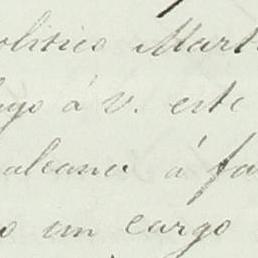 olitico Mart
go á V. este
alcance á fa
o un cargo